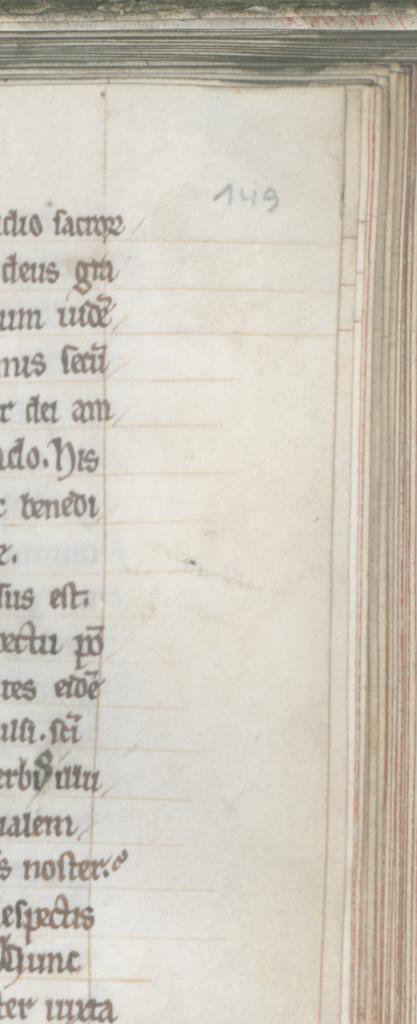 149
dio sacroꝝ
deus gra
um uidē
mus secū
r dei am
do. His
c benedi
e.
sus est.
ectu pō
res eidē
ulsi. sc̄i
erbis illu
ualem
s noster.
espectis
Hunc
ter iuxta